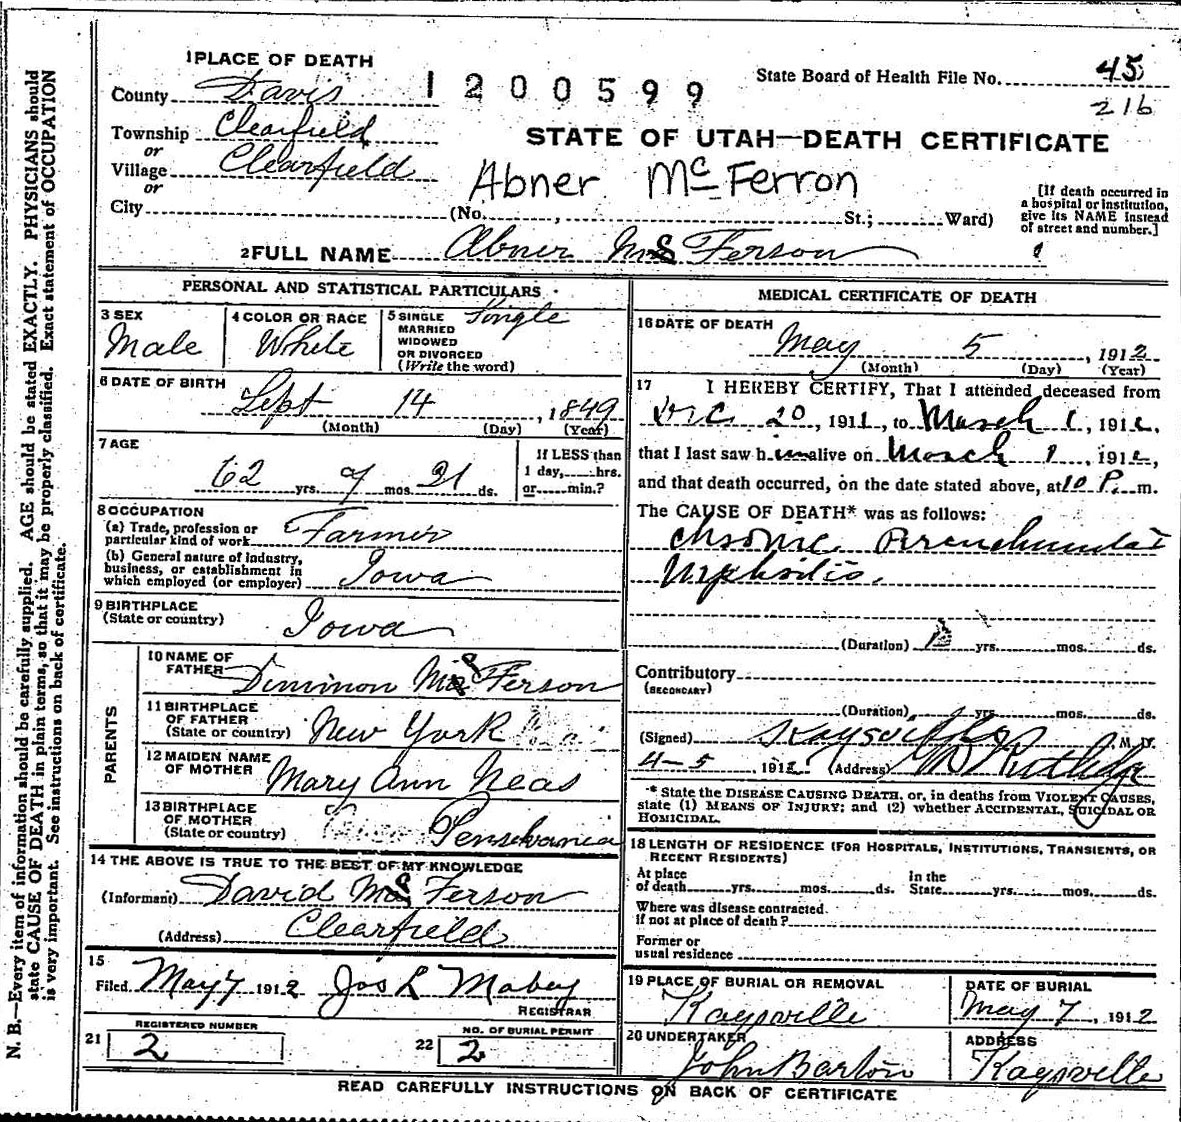 1 PLACE OF DEATH
County Davis
1200599
State Board of Health File No. 45
216
Township Clearfield
or
Village Clearfield
or
City
STATE OF UTAH—DEATH CERTIFICATE
Abner Mc Ferron
(No. , St.; Ward)
[If death occurred in
a hospital or institution,
give its NAME instead
of street and number.]
2 FULL NAME Abner Mc Ferson
PERSONAL AND STATISTICAL PARTICULARS
3 SEX
Male
4 COLOR OR RACE
White
5 SINGLE
MARRIED
WIDOWED
OR DIVORCED
(Write the word)
Single
6 DATE OF BIRTH
Sept 14, 1849
(Month) (Day) (Year)
7 AGE
62 yrs. 7 mos. 21 ds.
If LESS than
1 day, hrs.
or min.?
8 OCCUPATION
(a) Trade, profession or
particular kind of work Farmer
(b) General nature of industry,
business, or establishment in
which employed (or employer) Iowa
9 BIRTHPLACE
(State or country) Iowa
PARENTS
10 NAME OF
FATHER Diminon Mc Ferson
11 BIRTHPLACE
OF FATHER
(State or country) New York
12 MAIDEN NAME
OF MOTHER Mary Ann Neas
13 BIRTHPLACE
OF MOTHER
(State or country) Pensylvania
14 THE ABOVE IS TRUE TO THE BEST OF MY KNOWLEDGE
(Informant) David Mc Ferson
(Address) Clearfield
15
Filed May 7 1912 Jos L Mabey
REGISTRAR
21 REGISTERED NUMBER
2
22 NO. OF BURIAL PERMIT
2
MEDICAL CERTIFICATE OF DEATH
16 DATE OF DEATH
May 5, 1912
(Month) (Day) (Year)
17 I HEREBY CERTIFY, That I attended deceased from
Dec 20, 1911, to March 1, 1912,
that I last saw him alive on March 1, 1912,
and that death occurred, on the date stated above, at 10 P. m.
The CAUSE OF DEATH* was as follows:
Chronic Parenchymatat
Nephritis.
(Duration) yrs. mos. ds.
Contributory
(SECONDARY)
(Duration) yrs. mos. ds.
(Signed) Kaysville M. D.
4-5, 1912 (Address) Rutledge
* State the DISEASE CAUSING DEATH, or, in deaths from VIOLENT CAUSES,
state (1) MEANS OF INJURY; and (2) whether ACCIDENTAL, SUICIDAL OR
HOMICIDAL.
18 LENGTH OF RESIDENCE (FOR HOSPITALS, INSTITUTIONS, TRANSIENTS, OR
RECENT RESIDENTS)
At place
of death yrs. mos. ds.
In the
State yrs. mos. ds.
Where was disease contracted
if not at place of death?
Former or
usual residence
19 PLACE OF BURIAL OR REMOVAL
Kaysville
DATE OF BURIAL
May 7, 1912
20 UNDERTAKER
John Barton
ADDRESS
Kaysville
READ CAREFULLY INSTRUCTIONS ON BACK OF CERTIFICATE
N. B.—Every item of information should be carefully supplied. AGE should be stated EXACTLY. PHYSICIANS should
state CAUSE OF DEATH in plain terms, so that it may be properly classified. Exact statement of OCCUPATION
is very important. See instructions on back of certificate.